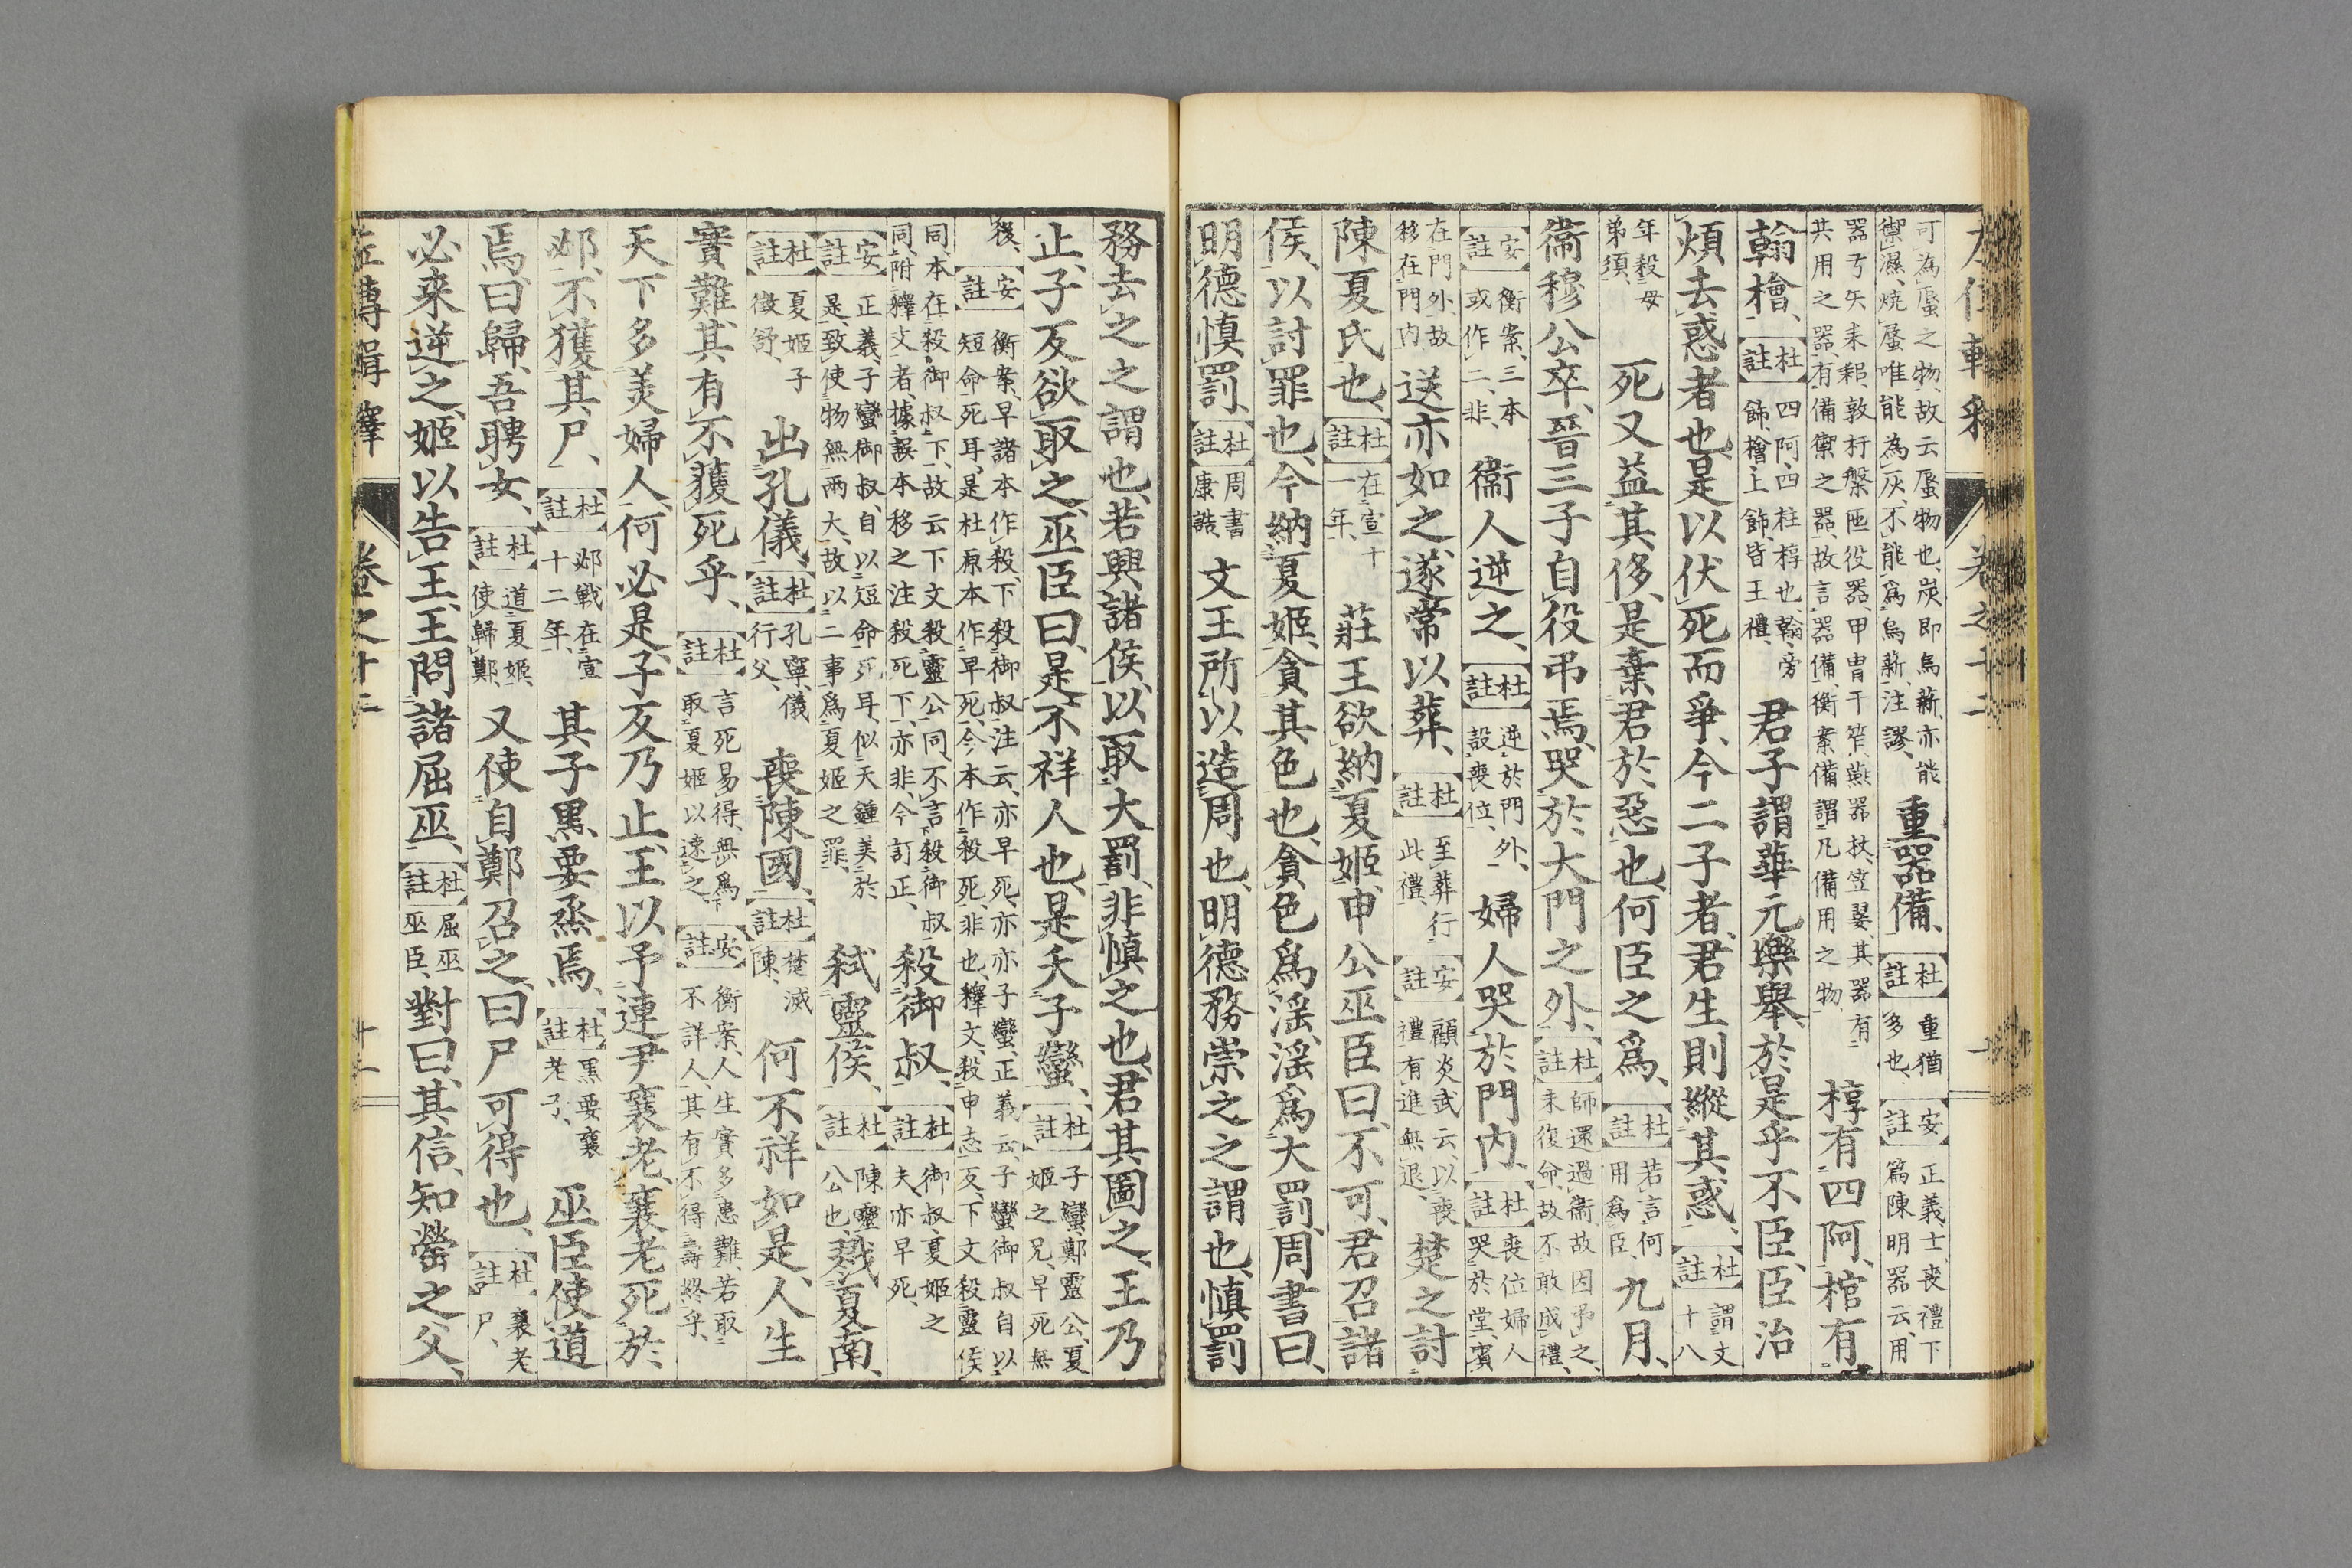 可為蜃之物、故云蜃物也、炭即烏薪、亦能
禦濕、燒蜃唯能為灰、不能爲烏薪、注謬、
重器備、
杜註 重猶多也、
安註 正義、士喪禮下
篇陳明器云、用
器弓矢耒耜、敦杅槃匜、役器、甲冑干笮、燕器杖、笠翣、其器有
共用之器、有備禦之器、故言器備、衡案備謂凡備用之物、
椁有四阿、棺有
翰檜、
杜註 四阿、四柱椁也、翰、旁
飾、檜上飾、皆王禮、
君子謂華元樂舉、於是乎不臣、臣治
煩去惑者也、是以伏死而爭、今二子者、君生則縱其惑、
杜註 謂文
十八
年殺母
弟須、
死又益其侈、是棄君於惡也、何臣之爲、
杜註 若言何
用爲臣、
九月、
衞穆公卒、晉三子自役弔焉、哭於大門之外、
杜註 師還過衞、故因弔之、
未復命、故不敢成禮、
安註 衡案、三本
或作二、非、
衞人逆之、
杜註 逆於門外、
設喪位、
婦人哭於門內、
杜註 喪位婦人
哭於堂、賓
在門外、故
移在門內、
送亦如之、遂常以葬、
杜註 至葬行
此禮、
安註 顧炎武云、以喪
禮有進無退、
楚之討
陳夏氏也、
杜註 在宣十
一年、
莊王欲納夏姬、申公巫臣曰、不可、君召諸
侯、以討罪也、今納夏姬、貪其色也、貪色爲淫、淫爲大罰、周書曰、
明德慎罰、
杜註 周書
康誥
文王所以造周也、明德務崇之之謂也、慎罰
務去之之謂也、若興諸侯、以取大罰、非慎之也、君其圖之、王乃
止、子反欲取之、巫臣曰、是不祥人也、是夭子蠻、
杜註 子蠻、鄭靈公、夏
姬之兄、早死無
後、
安註 衡案、早諸本作殺、下殺御叔注云、亦早死、亦亦子蠻、正義云、子蠻御叔自以
短命死耳、是杜原本作早死、今本作殺死、非也、釋文、殺申志反、下文殺靈侯
同、本在殺御叔下、故云下文殺靈公同、不言下殺御叔
同、附釋文者、據誤本移之注殺死下、亦非、今訂正、
殺御叔、
杜註 御叔夏姬之
夫、亦早死、
安註 正義、子蠻御叔、自以短命死耳、似天鍾美於
是、致使物無兩大、故以二事爲夏姬之罪、
弒靈侯、
杜註 陳靈
公也、
戮夏南、
杜註 夏姬子
徵舒、
出孔儀、
杜註 孔寧、儀
行父、
喪陳國、
杜註 楚滅
陳、
何不祥如是、人生
實難、其有不獲死乎、
杜註 言死易得、無爲
取夏姬以速之、
安註 衡案、人生實多患難、若取
不詳人、其有不得壽終乎、
天下多美婦人、何必是、子反乃止、王以予連尹襄老、襄老死於
邲、不獲其尸、
杜註 邲戰在宣
十二年、
其子黑要烝焉、
杜註 黑要襄
老子、
巫臣使道
焉、曰歸、吾聘女、
杜註 道夏姬、
使歸鄭、
又使自鄭召之、曰尸可得也、
杜註 襄老
尸、
必來逆之、姬以告王、王問諸屈巫、
杜註 屈巫
巫臣、
對曰、其信、知罃之父、
左傳輯釋 卷之十二 十二